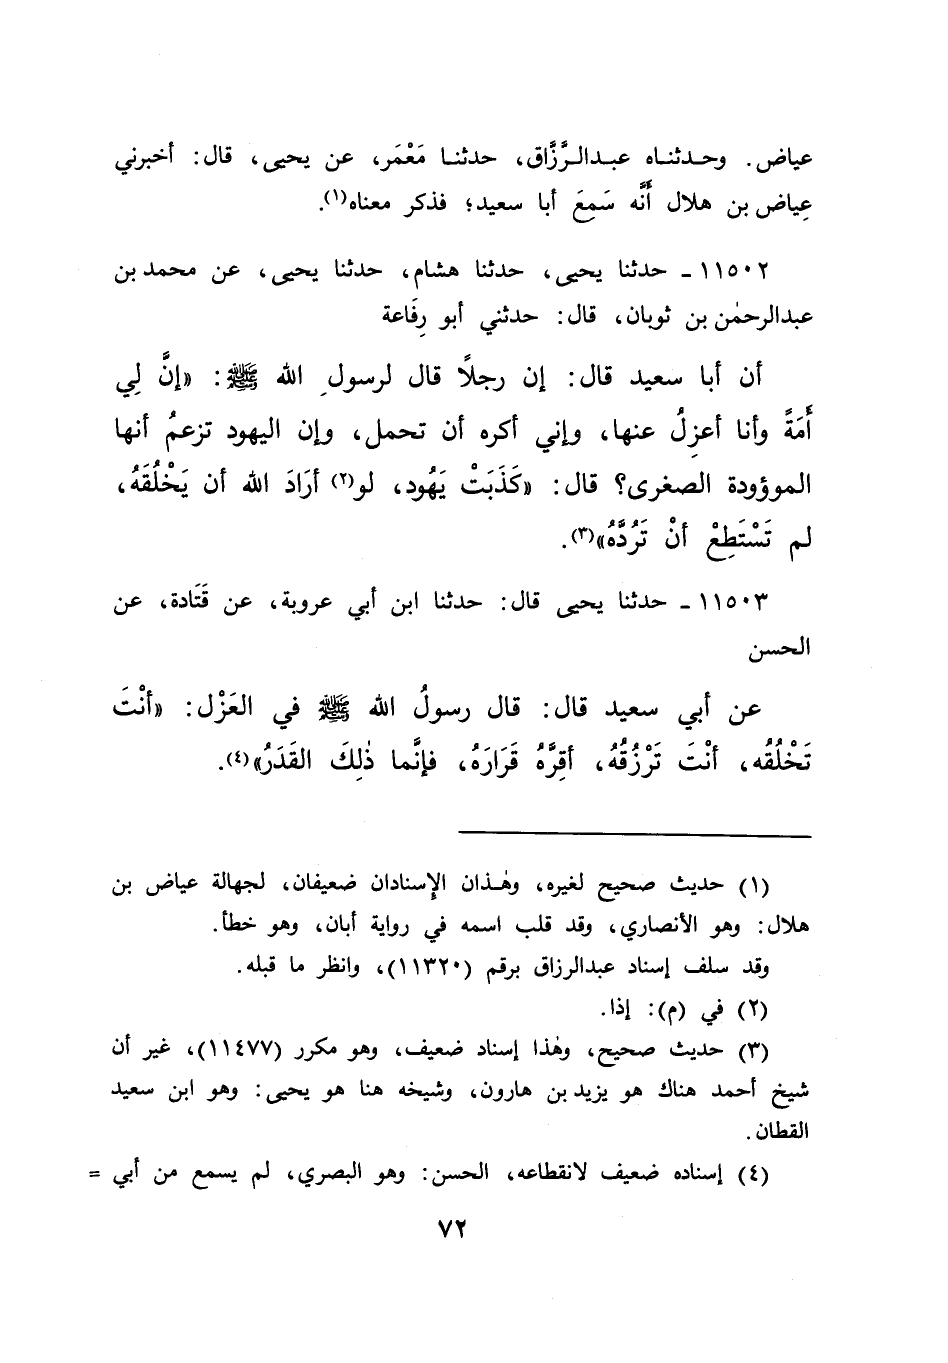 عياض. وحدثناه عبدالرَّزَّاق، حدثنا مَعْمَر، عن يحيى، قال: أخبرني
عِياض بن هلال أَنَّه سَمِعَ أبا سعيد؛ فذكر معناه(١).
١١٥٠٢ - حدثنا يحيى، حدثنا هشام، حدثنا يحيى، عن محمد بن
عبدالرحمٰن بن ثوبان، قال: حدثني أبو رِفَاعة
أن أبا سعيد قال: إن رجلاً قال لرسولِ الله ﷺ: «إنَّ لِي
أَمَةً وأنا أعزِلُ عنها، وإني أكره أن تحمل، وإن اليهود تزعمُ أنها
الموؤودة الصغرى؟ قال: «كَذَبَتْ يَهُود، لو(٢) أرَادَ الله أن يَخْلُقَهُ،
لم تَسْتَطِعْ أنْ تَرُدَّهُ»(٣).
١١٥٠٣ - حدثنا يحيى قال: حدثنا ابن أبي عروبة، عن قَتَادة، عن
الحسن
عن أبي سعيد قال: قال رسولُ الله ﷺ في العَزْل: «أنْتَ
تَخْلُقُه، أنْتَ تَرْزُقُهُ، أقِرَّهُ قَرَارَهُ، فإنَّما ذٰلِكَ القَدَرُ»(٤).
(١) حديث صحيح لغيره، وهٰذان الإسنادان ضعيفان، لجهالة عياض بن
هلال: وهو الأنصاري، وقد قلب اسمه في رواية أبان، وهو خطأ.
وقد سلف إسناد عبدالرزاق برقم (١١٣٢٠)، وانظر ما قبله.
(٢) في (م): إذا.
(٣) حديث صحيح، وهٰذا إسناد ضعيف، وهو مكرر (١١٤٧٧)، غير أن
شيخ أحمد هناك هو يزيد بن هارون، وشيخه هنا هو يحيى: وهو ابن سعيد
القطان.
(٤) إسناده ضعيف لانقطاعه، الحسن: وهو البصري، لم يسمع من أبي =
٧٢